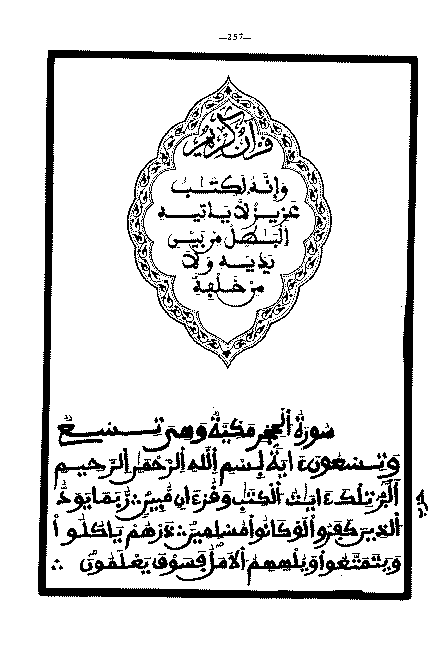 —257—
قرآن كريم
وَإِنَّهُ لَكِتَٰبٌ
عَزِيزٌ لَّا يَاتِيهِ
الْبَٰطِلُ مِنۢ بَيْنِ
يَدَيْهِ وَلَا
مِنْ خَلْفِهِ
سُورَةُ الْحِجْرِ مَكِّيَّةٌ وَهِيَ تِسْعٌ
وَتِسْعُونَ ءَايَةً بِسْمِ اللَّهِ الرَّحْمَٰنِ الرَّحِيمِ
أَلَٓرَ تِلْكَ ءَايَٰتُ الْكِتَٰبِ وَقُرْءَانٍ مُّبِينٍ ∴ رُّبَمَا يَوَدُّ
الذِينَ كَفَرُوا لَوْ كَانُوا مُسْلِمِينَ ∴ ذَرْهُمْ يَاكُلُوا
وَيَتَمَتَّعُوا وَيُلْهِهِمُ الْأَمَلُ فَسَوْفَ يَعْلَمُونَ ∴